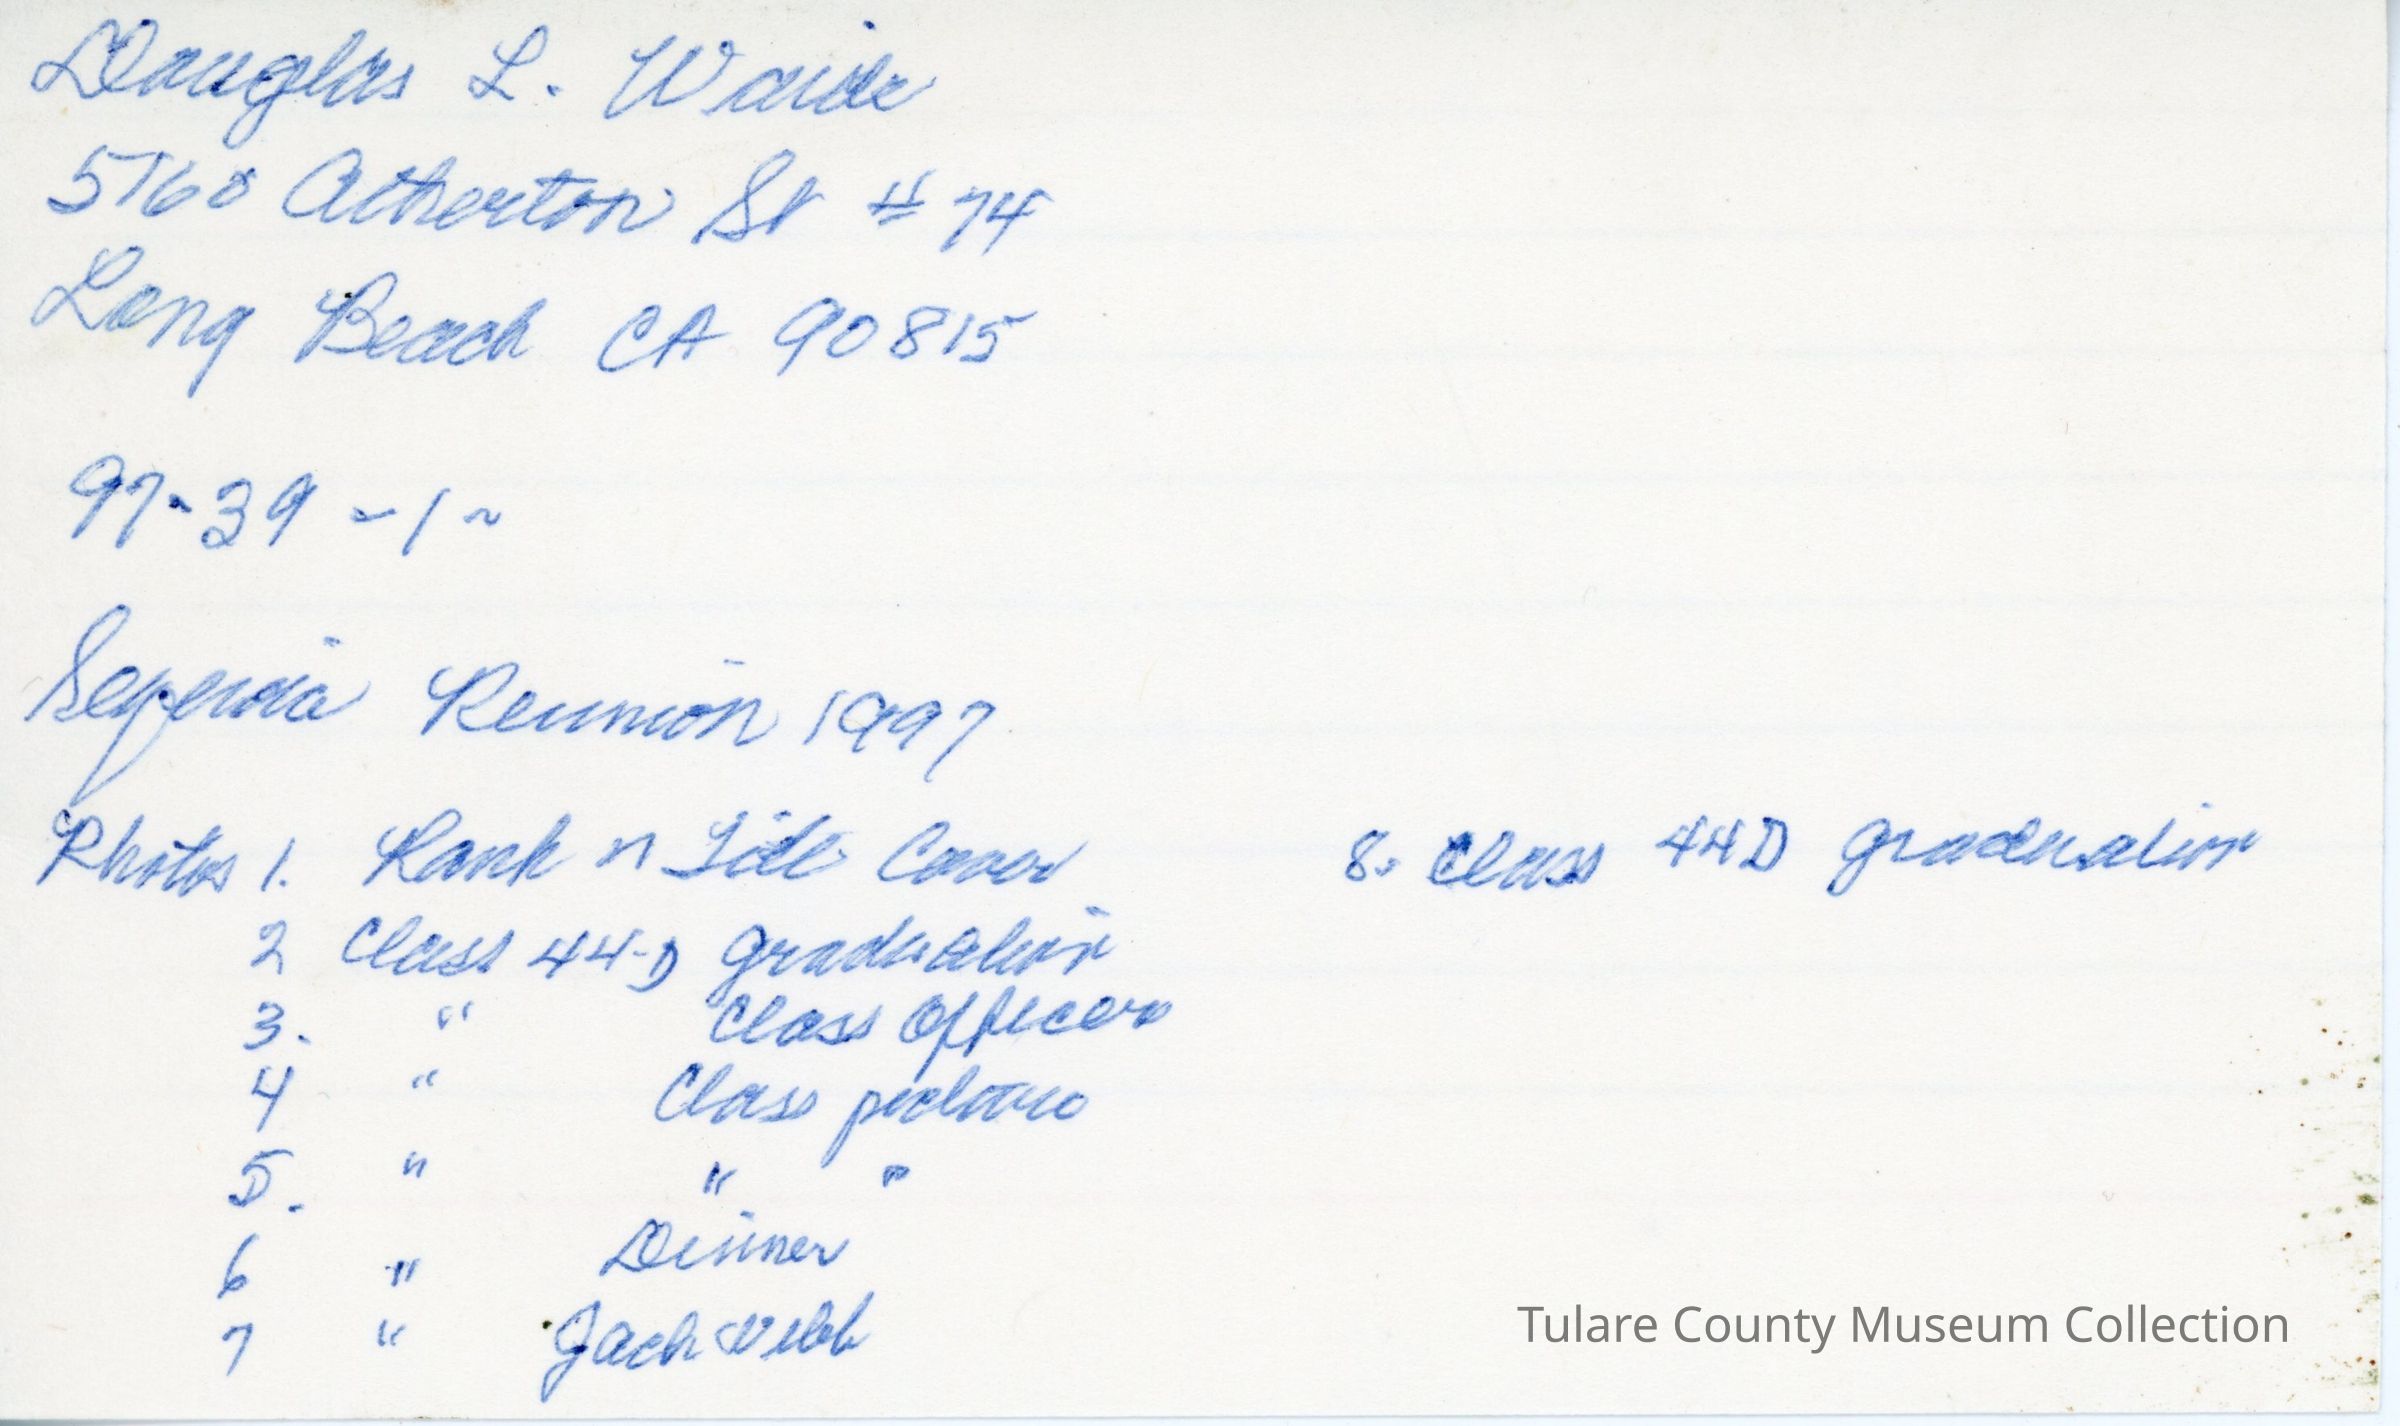 Douglas L. Waide
5768 Atherton St #74
Long Beach CA 90815
97-39-1-
Sequoia Reunion 1997
Photos 1. Rank n File Cover
2 Class 44-D graduation
3. " Class Officers
4 " Class picture
5. " " "
6 " Dinner
7 " Jack Webb
8. Class 44D graduation
Tulare County Museum Collection